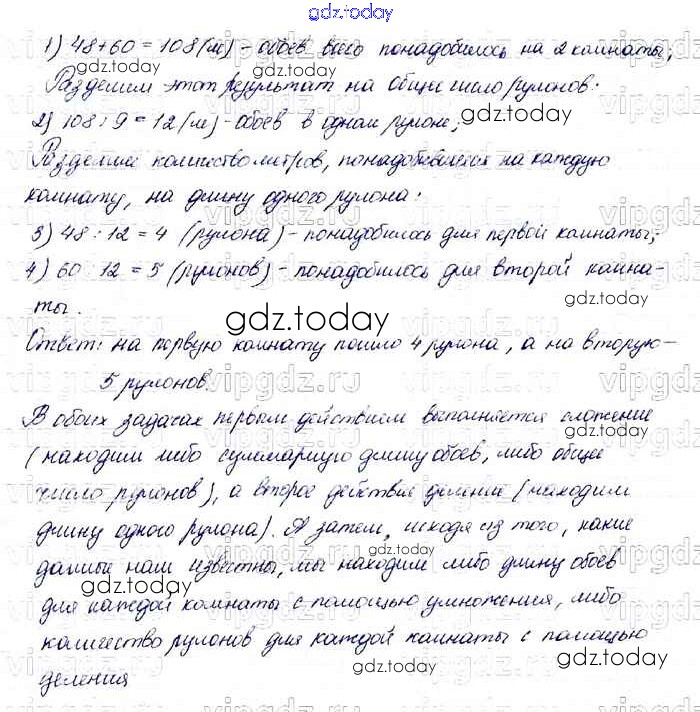 gdz.today
1) 48+60 = 108 (м) - обоев всего понадобилось на 2 комнаты;
Разделим этот результат на общее число рулонов:
2) 108 : 9 = 12 (м) - обоев в одном рулоне;
Разделим количество метров, понадобившееся на каждую
комнату, на длину одного рулона:
3) 48 : 12 = 4 (рулона) - понадобилось для первой комнаты;
4) 60 : 12 = 5 (рулонов) - понадобилось для второй комна-
ты.
Ответ: на первую комнату пошло 4 рулона, а на вторую -
5 рулонов.
В обоих задачах первым действием выполняется сложение
(находим либо суммарную длину обоев, либо общее
число рулонов), а второе действие деление (находим
длину одного рулона). А затем, исходя из того, какие
данные нам известны, мы находим либо длину обоев
для каждой комнаты с помощью умножения, либо
количество рулонов для каждой комнаты с помощью
деления